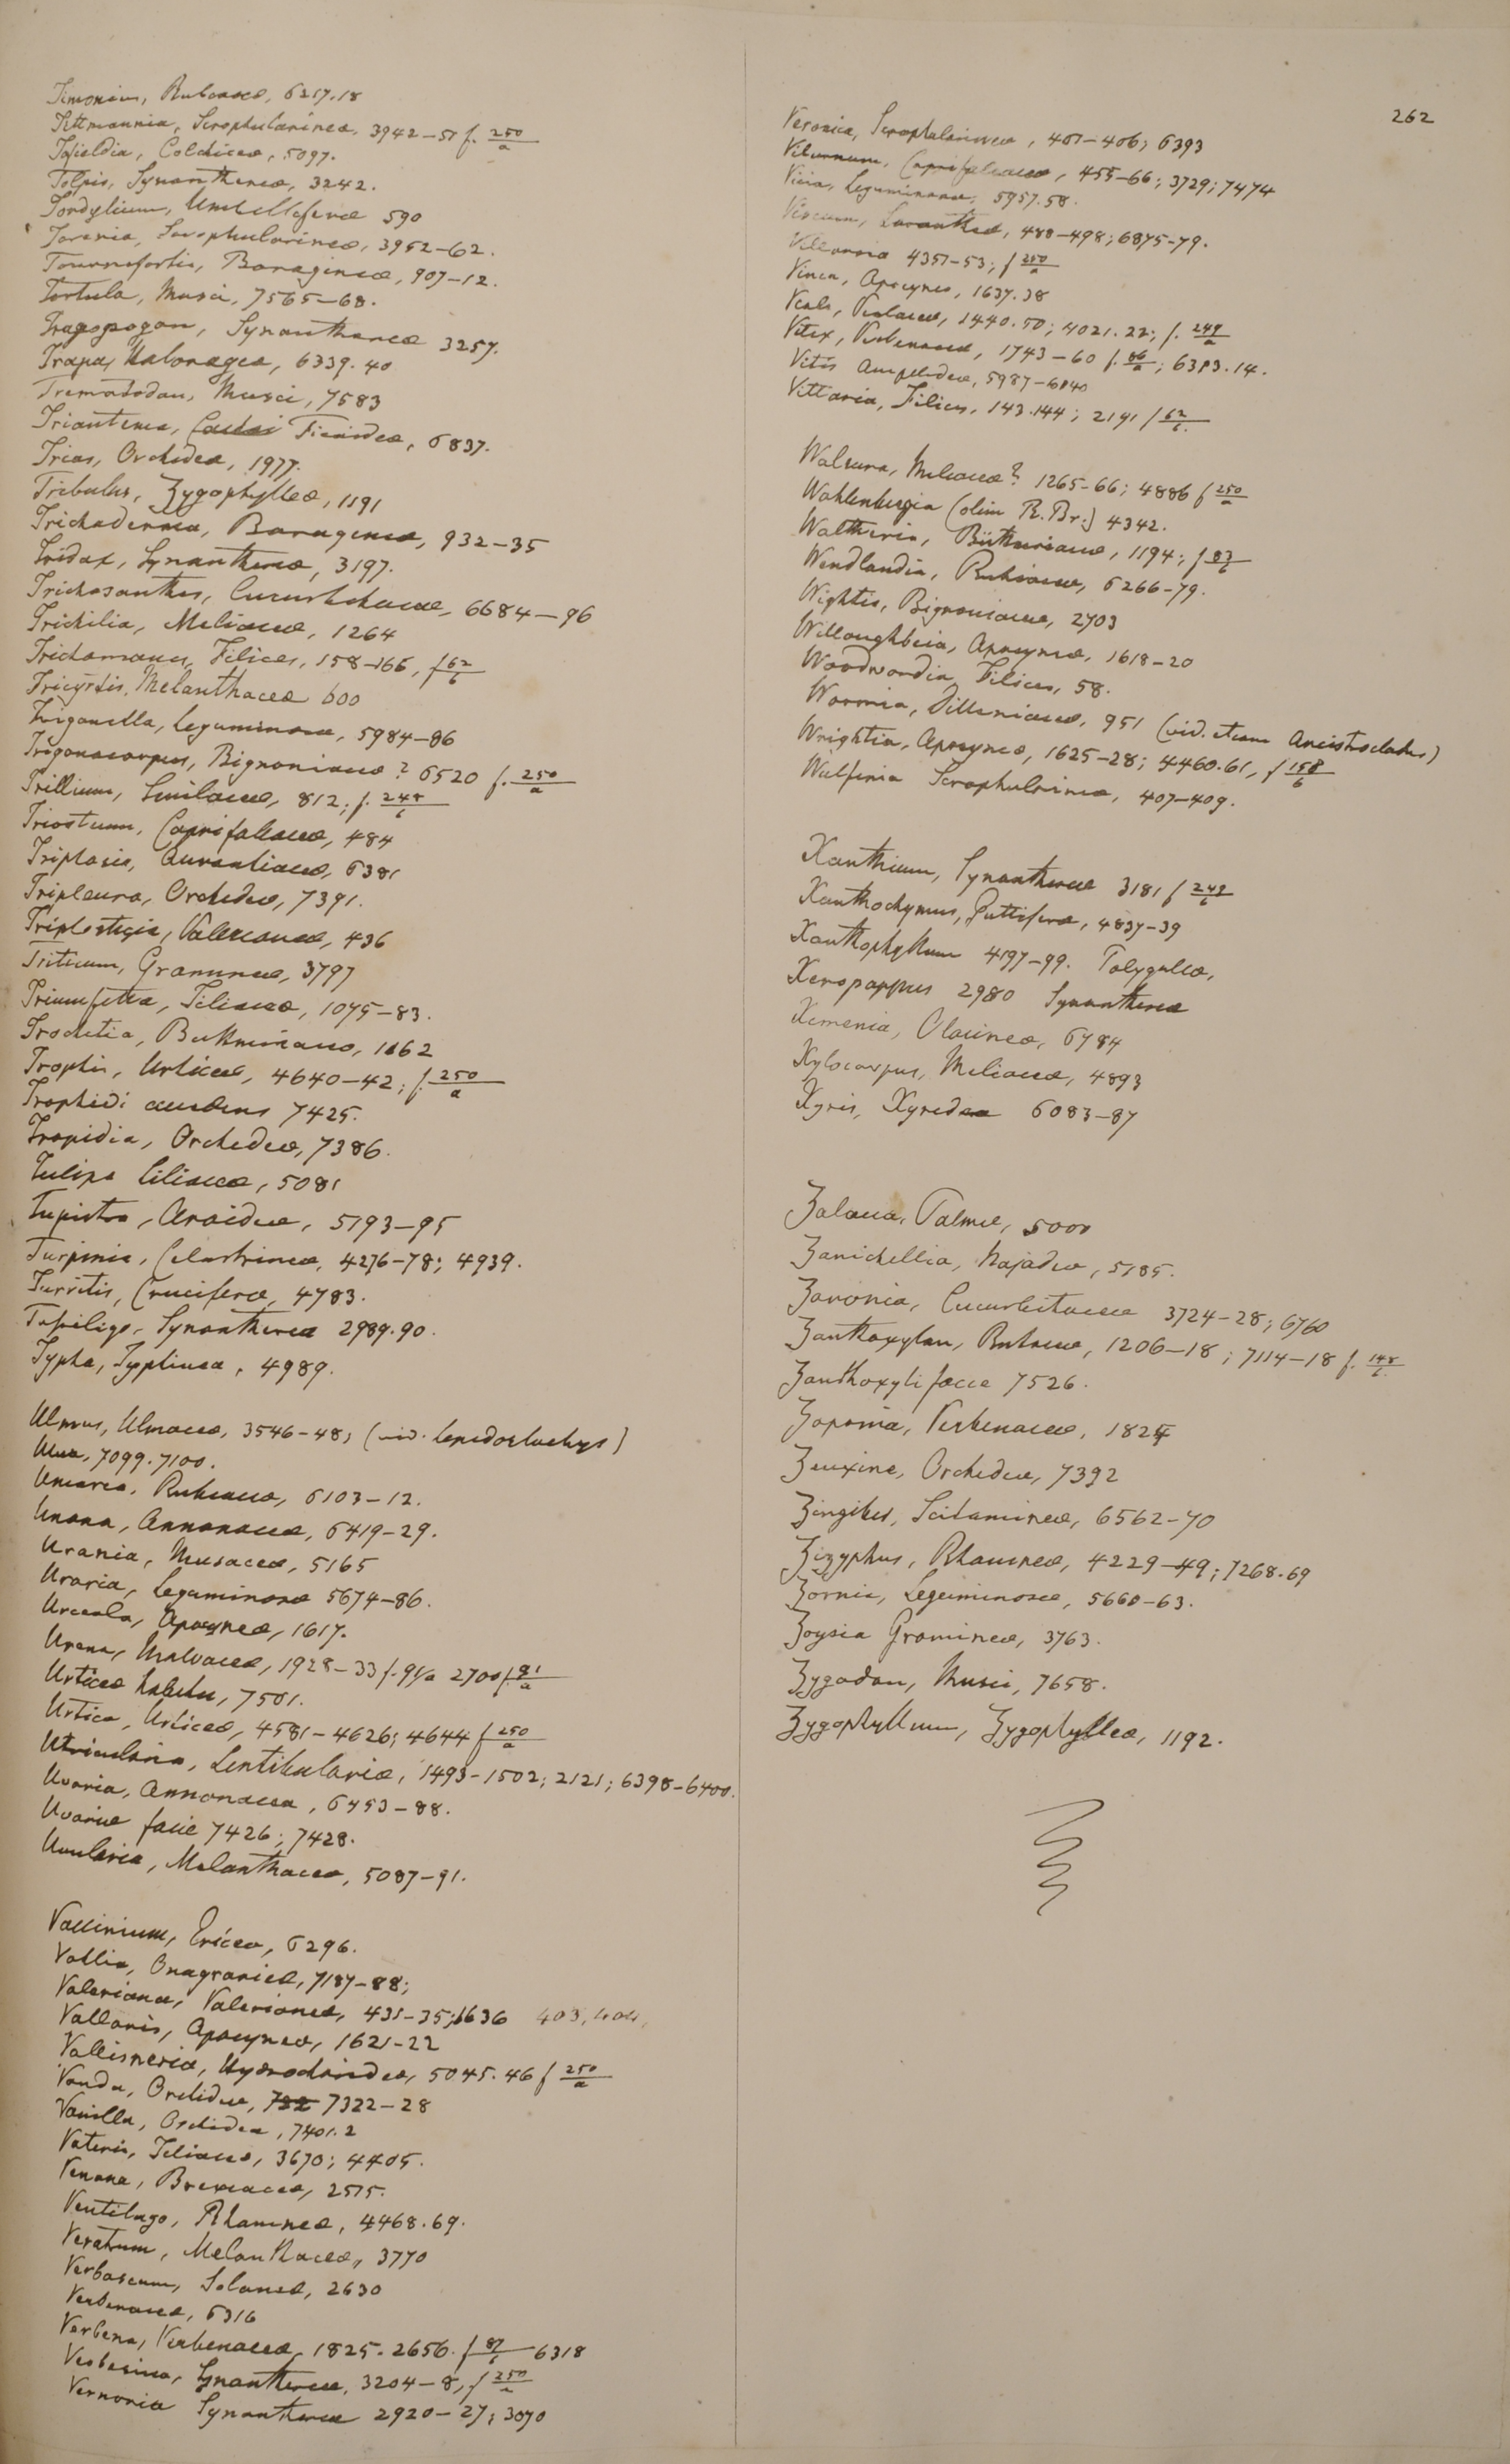 Timonius, Rubiaceæ, 6217.18
Tittmannia, Scrophularineæ, 3942-51 f. 250/a
Tofieldia, Colchiceæ, 5097.
Tolpis, Synanthereæ, 3242.
Tordylium, Umbelliferæ 590
Torenia, Scrophularineæ, 3952-62.
Tournefortia, Boragineæ, 907-12.
Tortula, Musci, 7565-68.
Tragopogon, Synanthereæ 3257.
Trapa, Halorageæ, 6339.40
Trematodon, Musci, 7583
Triantema, Ficoideæ, 6837.
Trias, Orchideæ, 1977.
Tribulus, Zygophylleæ, 1191
Trichodesma, Boragineæ, 932-35
Tridax, Synanthereæ, 3197.
Trichosanthes, Cucurbitaceæ, 6684-96
Trichilia, Meliaceæ, 1264
Trichomanes, Filices, 158-166, f 62/b
Tricyrtis, Melanthaceæ 600
Trigonella, Leguminosæ, 5984-86
Trigonocarpus, Bignoniaceæ? 6520 f. 250/a
Trillium, Smilaceæ, 812; f. 248/b
Triosteum, Caprifoliaceæ, 484
Triphasia, Aurantiaceæ, 6381
Tripleura, Orchideæ, 7391.
Triplostegia, Valerianeæ, 436
Triticum, Gramineæ, 3797
Triumfetta, Tiliaceæ, 1075-83.
Trochetia, Büttneriaceæ, 1162
Trophis, Urticeæ, 4640-42; f. 250/a
Trophidi accedens 7425.
Tropidia, Orchideæ, 7386.
Tulipa Liliaceæ, 5081
Tupistra, Aroideæ, 5193-95
Turpinia, Celastrineæ, 4276-78; 4939.
Turritis, Cruciferæ, 4783.
Tussiligo, Synanthereæ 2989.90.
Typha, Typhineæ, 4989.
Ulmus, Ulmaceæ, 3546-48; (vid. Lepidostachys)
Ulva, 7099.7100.
Uncaria, Rubiaceæ, 6103-12.
Unona, Annonaceæ, 6419-29.
Urania, Musaceæ, 5165
Uraria, Leguminosæ 5674-86.
Urceola, Apocyneæ, 1617.
Urena, Malvaceæ, 1928-33 f. 91/a 2700 f. 91/a
Urticeo habitu, 7501.
Urtica, Urticeæ, 4581-4626; 4644 f 250/a
Utricularia, Lentibulariæ, 1493-1502; 2121; 6398-6400.
Uvaria, Annonaceæ, 6453-88.
Uvariæ facie 7426; 7428.
Uvularia, Melanthaceæ, 5087-91.
Vaccinium, Ericeæ, 6296.
Vallia, Onagrarieæ, 7187-88;
Valeriana, Valerianeæ, 431-35; 1636 403, 404,
Vallaris, Apocyneæ, 1621-22
Vallisneria, Hydrocharideæ, 5045.46 f 250/a
Vanda, Orchideæ, 732 7322-28
Vanilla, Orchideæ, 7401.2
Vateria, Tiliaceæ, 3670; 4405.
Venana, Brexiaceæ, 2515.
Ventilago, Rhamneæ, 4468.69.
Veratrum, Melanthaceæ, 3770
Verbascum, Solaneæ, 2630
Verbenaceæ, 6316
Verbena, Verbenaceæ, 1825. 2656. f 87/b 6318
Verbesina, Synanthereæ, 3204-8, f 250/a
Vernonia Synanthereæ 2920-27; 3070
262
Veronica, Scrophularineæ, 401-406; 6393
Viburnum, Caprifoliaceæ, 455-66; 3729; 7474
Vicia, Leguminosæ, 5957.58.
Viscum, Lorantheæ, 488-498; 6875-79.
Villarsia 4351-53; f 250/a
Vinca, Apocyneæ, 1637.38
Viola, Violaceæ, 1440.50; 4021.22; f. 249/a
Vitex, Verbenaceæ, 1743-60 f. 86/a; 6313.14.
Vitis Ampelideæ, 5987-6040
Vittaria, Filices, 143.144; 2191 f 62/b
Walsura, Meliaceæ? 1265-66; 4886 f 250/a
Wahlenbergia (olim R. Br.) 4342.
Waltheria, Büttneriaceæ, 1194; f 83/b
Wendlandia, Rubiaceæ, 6266-79.
Wightia, Bignoniaceæ, 2703
Willoughbeia, Apocyneæ, 1618-20
Woodwardia, Filices, 58.
Wormia, Dilleniaceæ, 951 (vid. etiam Ancistrocladus)
Wrightia, Apocyneæ, 1625-28; 4460.61, f 158/b
Wulfenia Scrophularineæ, 407-409.
Xanthium, Synanthereæ 3181 f 249/b
Xanthochymus, Guttiferæ, 4837-39
Xanthophyllum 4197-99. Polygaleæ,
Xeropappus 2980 Synanthereæ
Ximenia, Olacineæ, 6784
Xylocarpus, Meliaceæ, 4893
Xyris, Xyrideæ 6083-87
Zalacca, Palmæ, 5000
Zanichellia, Najadeæ, 5185.
Zanonia, Cucurbitaceæ 3724-28; 6760
Zanthoxylon, Rutaceæ, 1206-18; 7114-18 f. 148/b
Zanthoxyli facie 7526.
Zapania, Verbenaceæ, 1824
Zeuxine, Orchideæ, 7392
Zingiber, Scitamineæ, 6562-70
Zizyphus, Rhamneæ, 4229-49; 7268.69
Zornia, Leguminosæ, 5660-63.
Zoysia Gramineæ, 3763.
Zygodon, Musci, 7658.
Zygophyllum, Zygophylleæ, 1192.